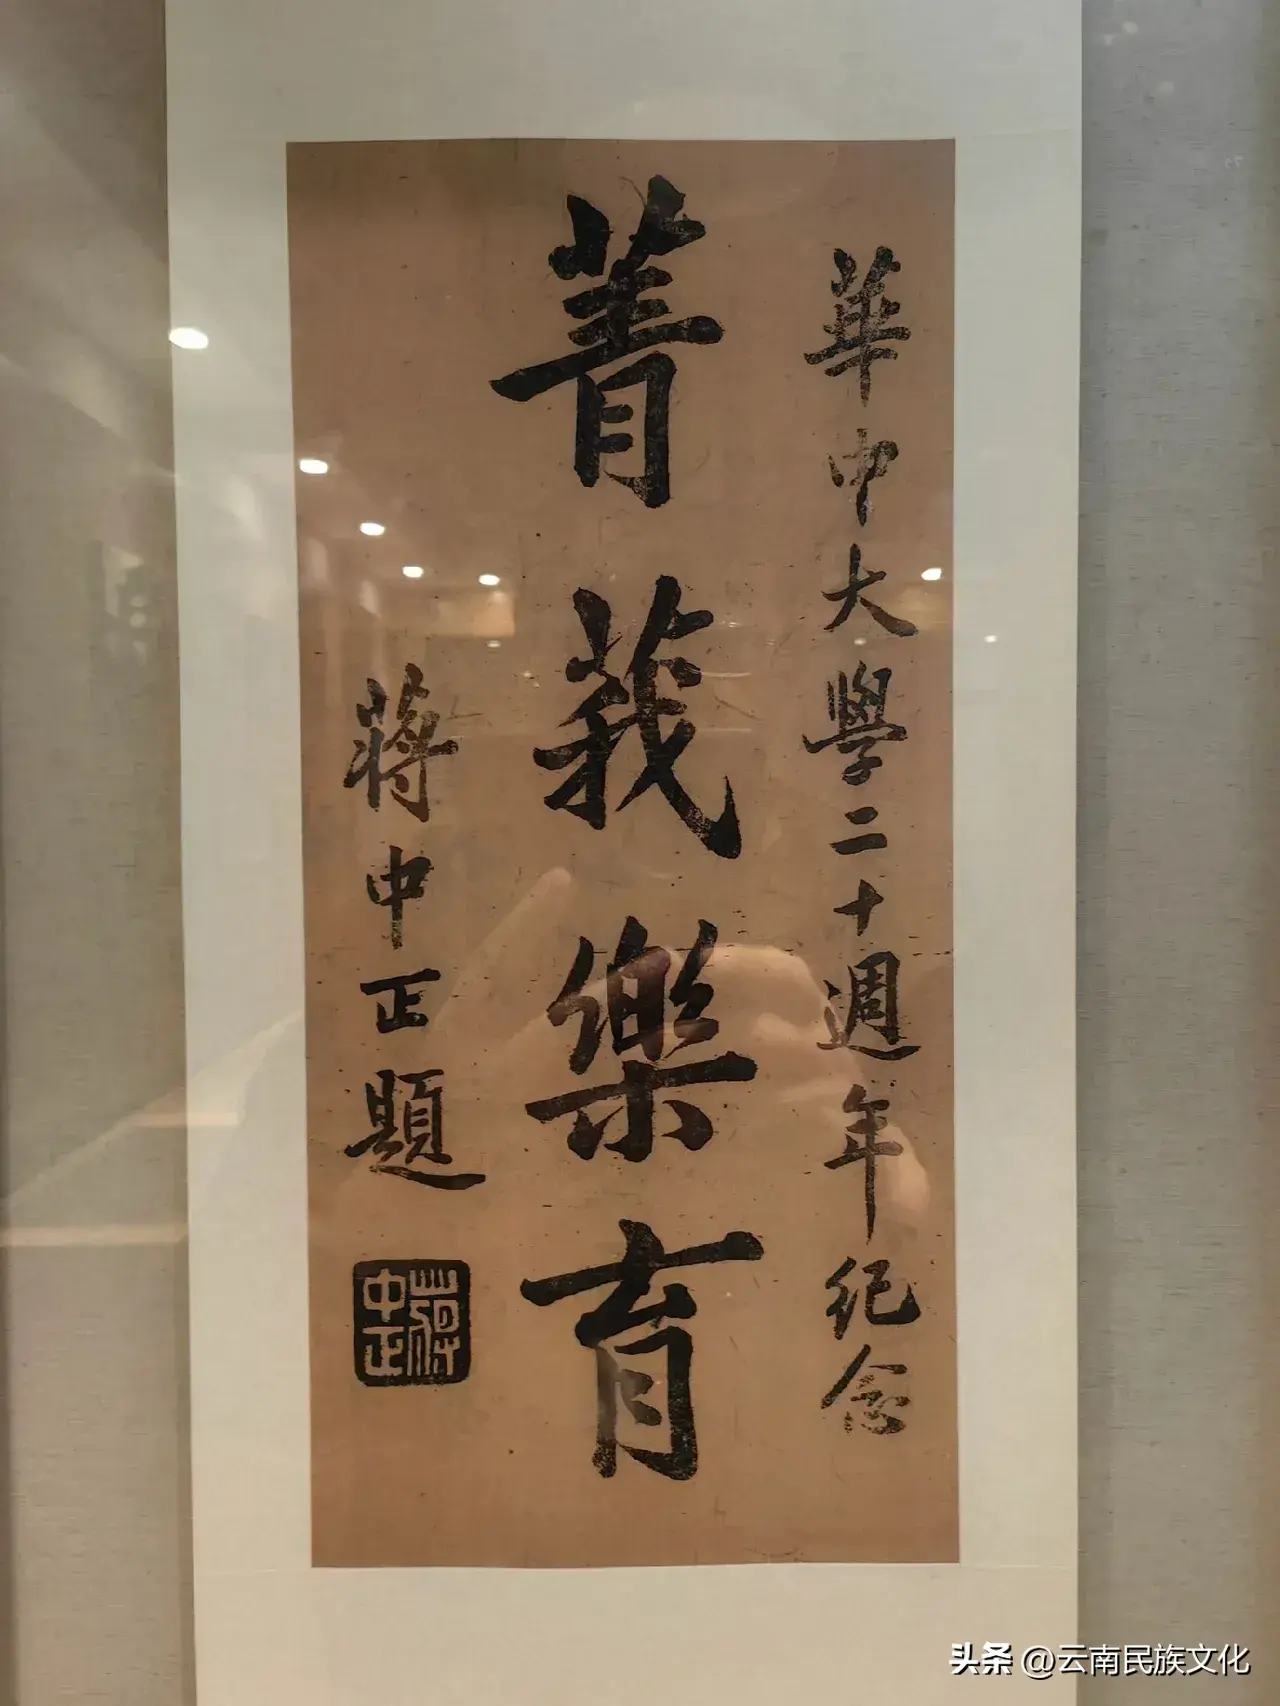 華中大學二十週年紀念
菁莪樂育
蔣中正題
蔣中正
头条 @云南民族文化